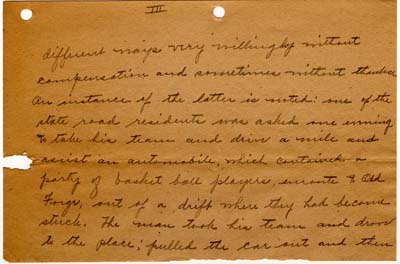 III
different ways very willingly without
compensation and sometimes without thanks.
An instance of the latter is noted: one of the
state road residents was asked one evening
to take his team and drive a mile and
assist an automobile, which contained a
party of basket ball players, enroute to Old
Forge, out of a drift where they had become
stuck. The man took his team and drove
to the place; pulled the car out and then